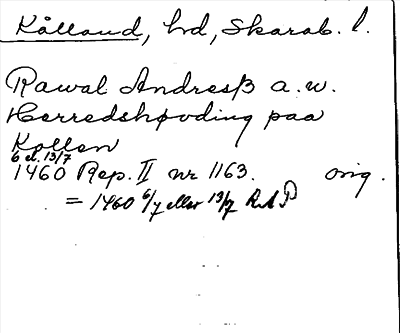 Kålland, hd, Skarab. l.
Rawal Andresß a.w.
Herredshøvding paa
Kollen
6 el. 13/7
1460 Rep. II nr 1163. orig.
= 1460 6/7 eller 13/7 RAP